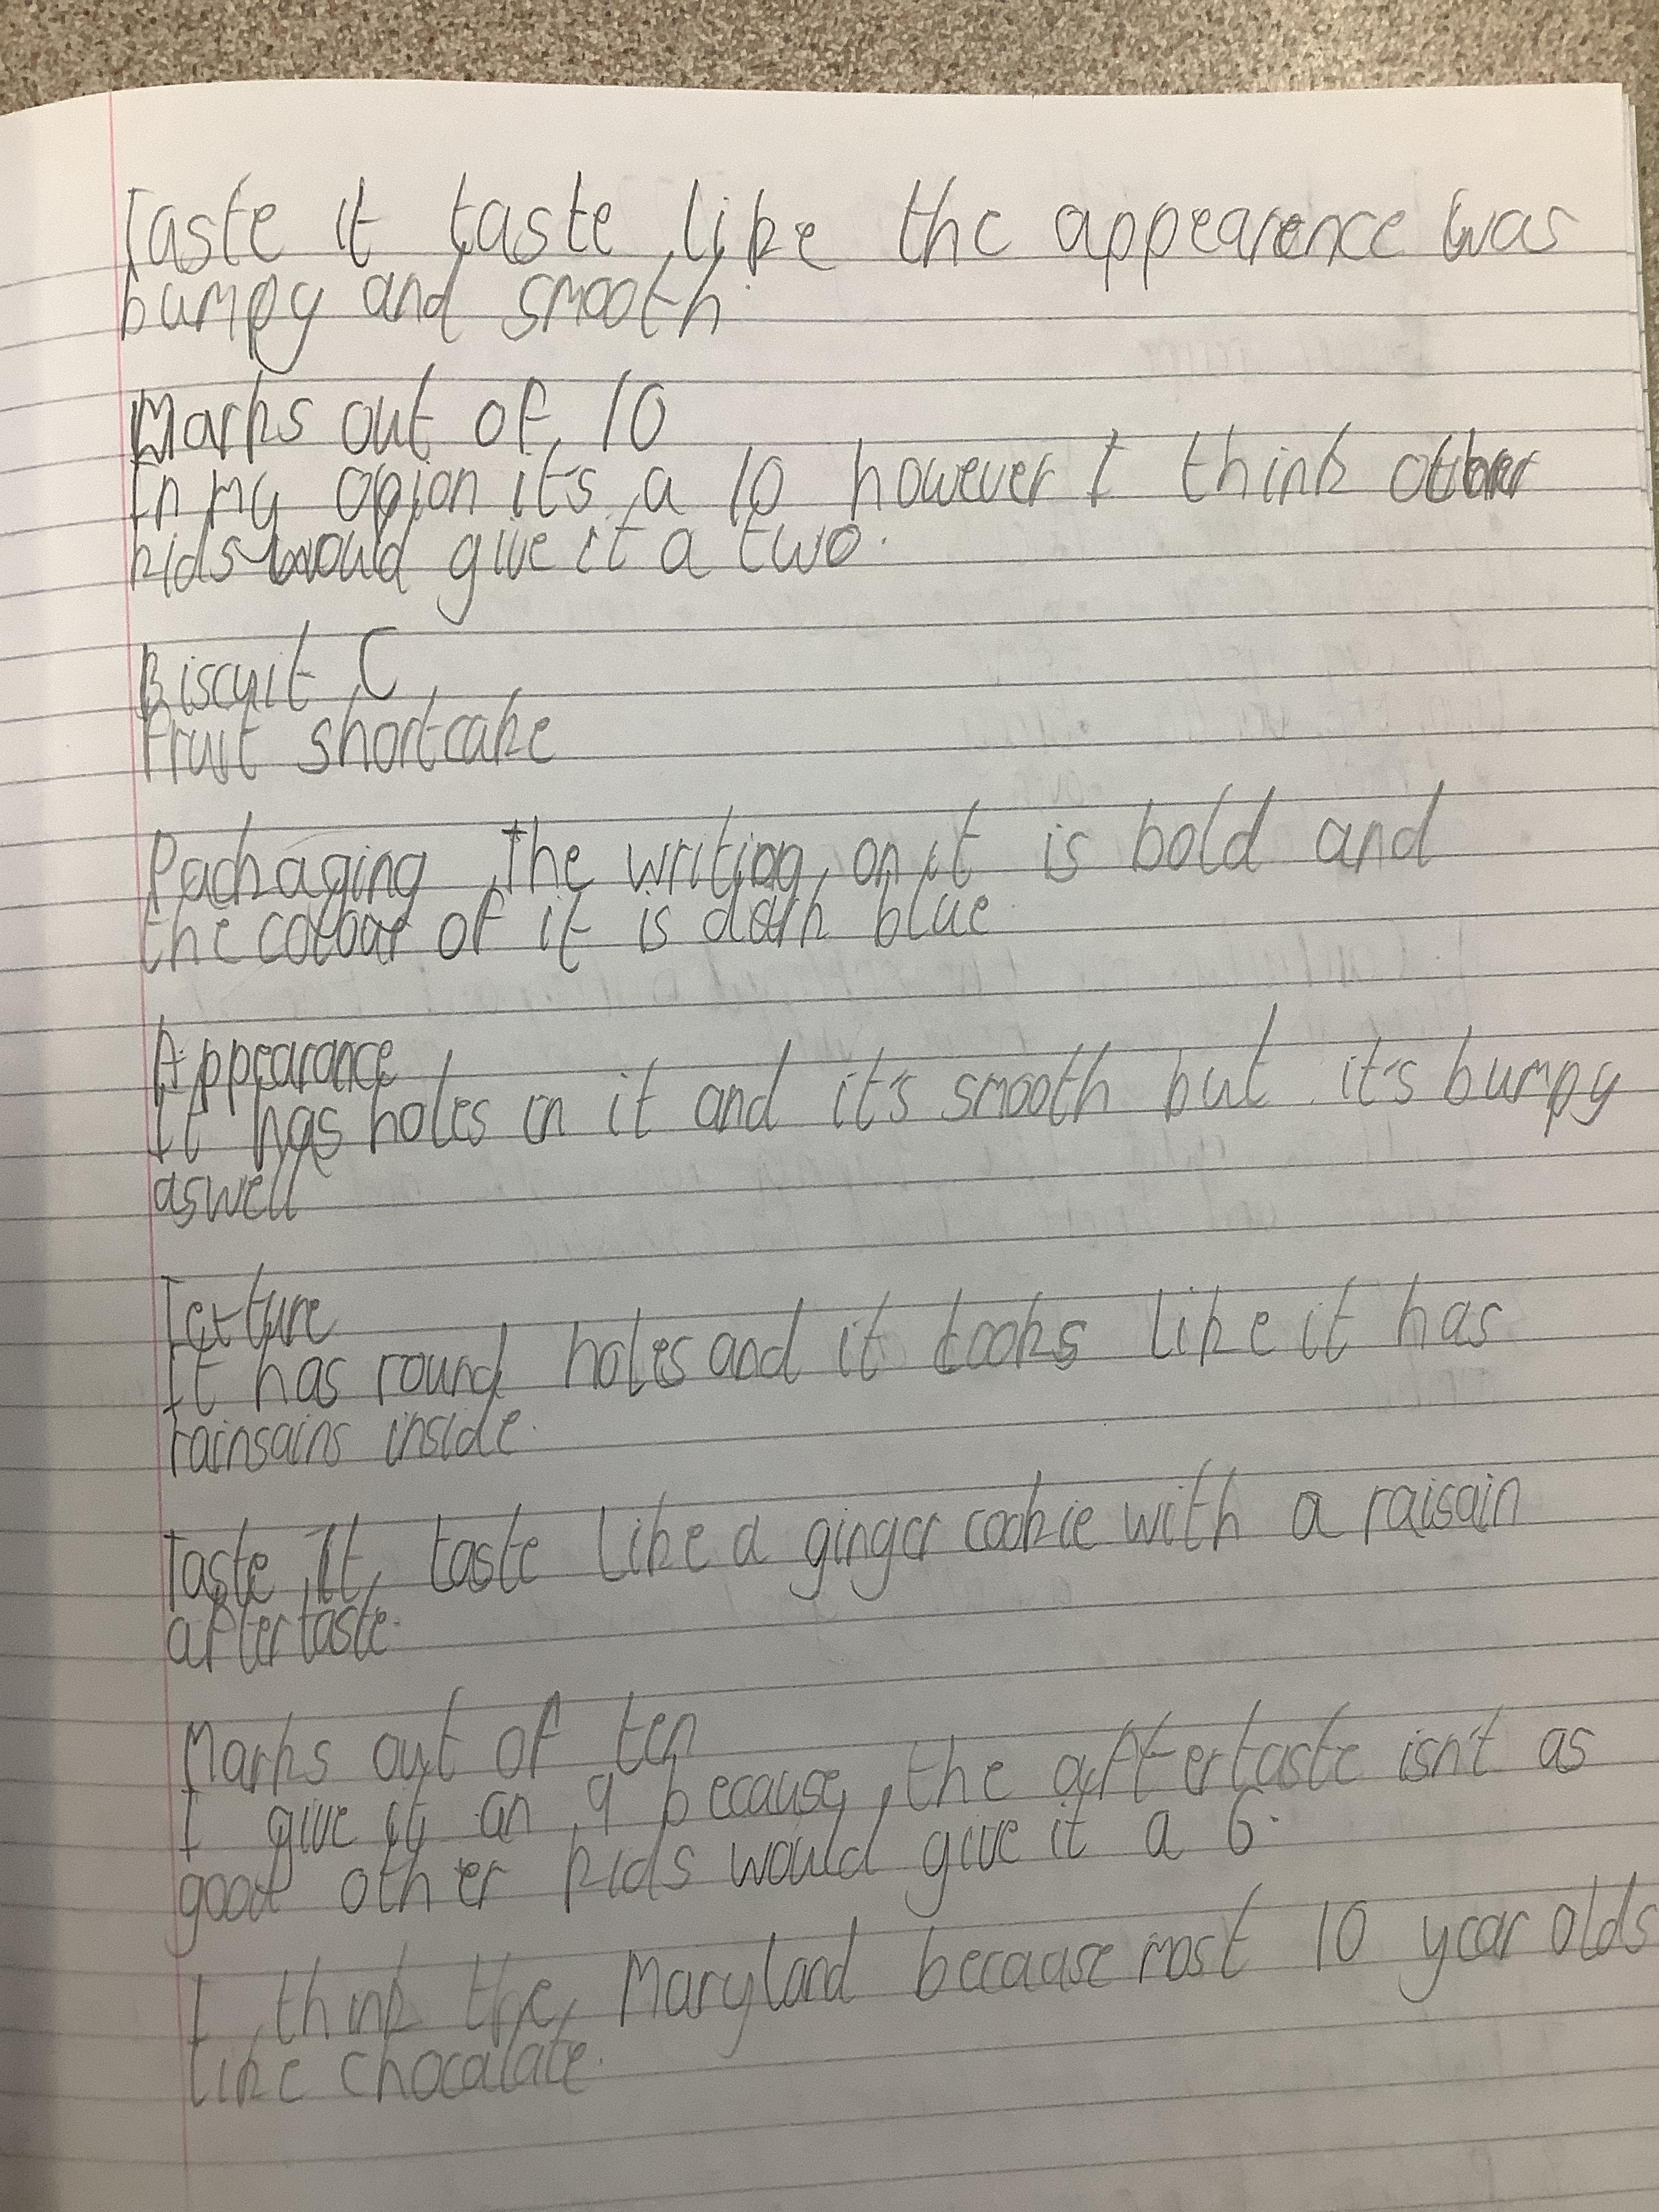 Taste it taste like the appearence was
bumpy and smooth.
Marks out of 10
In my opion it's a 10 however I think other
kids would give it a two.
Biscuit C
Fruit shortcake
Packaging the writing on it is bold and
the colour of it is dark blue
Appearance
It has holes in it and it's smooth but it's bumpy
aswell
Texture
It has round holes and it looks like it has
rainsains inside.
Taste It taste like a ginger cookie with a raisain
aftertaste.
Marks out of ten
I give it an 9 because the aftertaste isn't as
good other kids would give it a 6.
I think the Maryland because most 10 year olds
like chocalate.